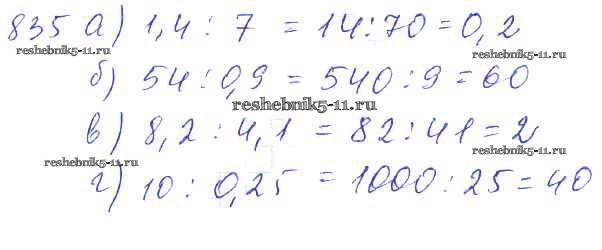 835 а) 1,4 : 7 = 14:70 = 0,2
reshebnik5-11.ru reshebnik5-11.ru
б) 54 : 0,9 = 540 : 9 = 60
reshebnik5-11.ru
в) 8,2 : 4,1 = 82 : 41 = 2
reshebnik5-11.ru reshebnik5-11.ru
г) 10 : 0,25 = 1000 : 25 = 40